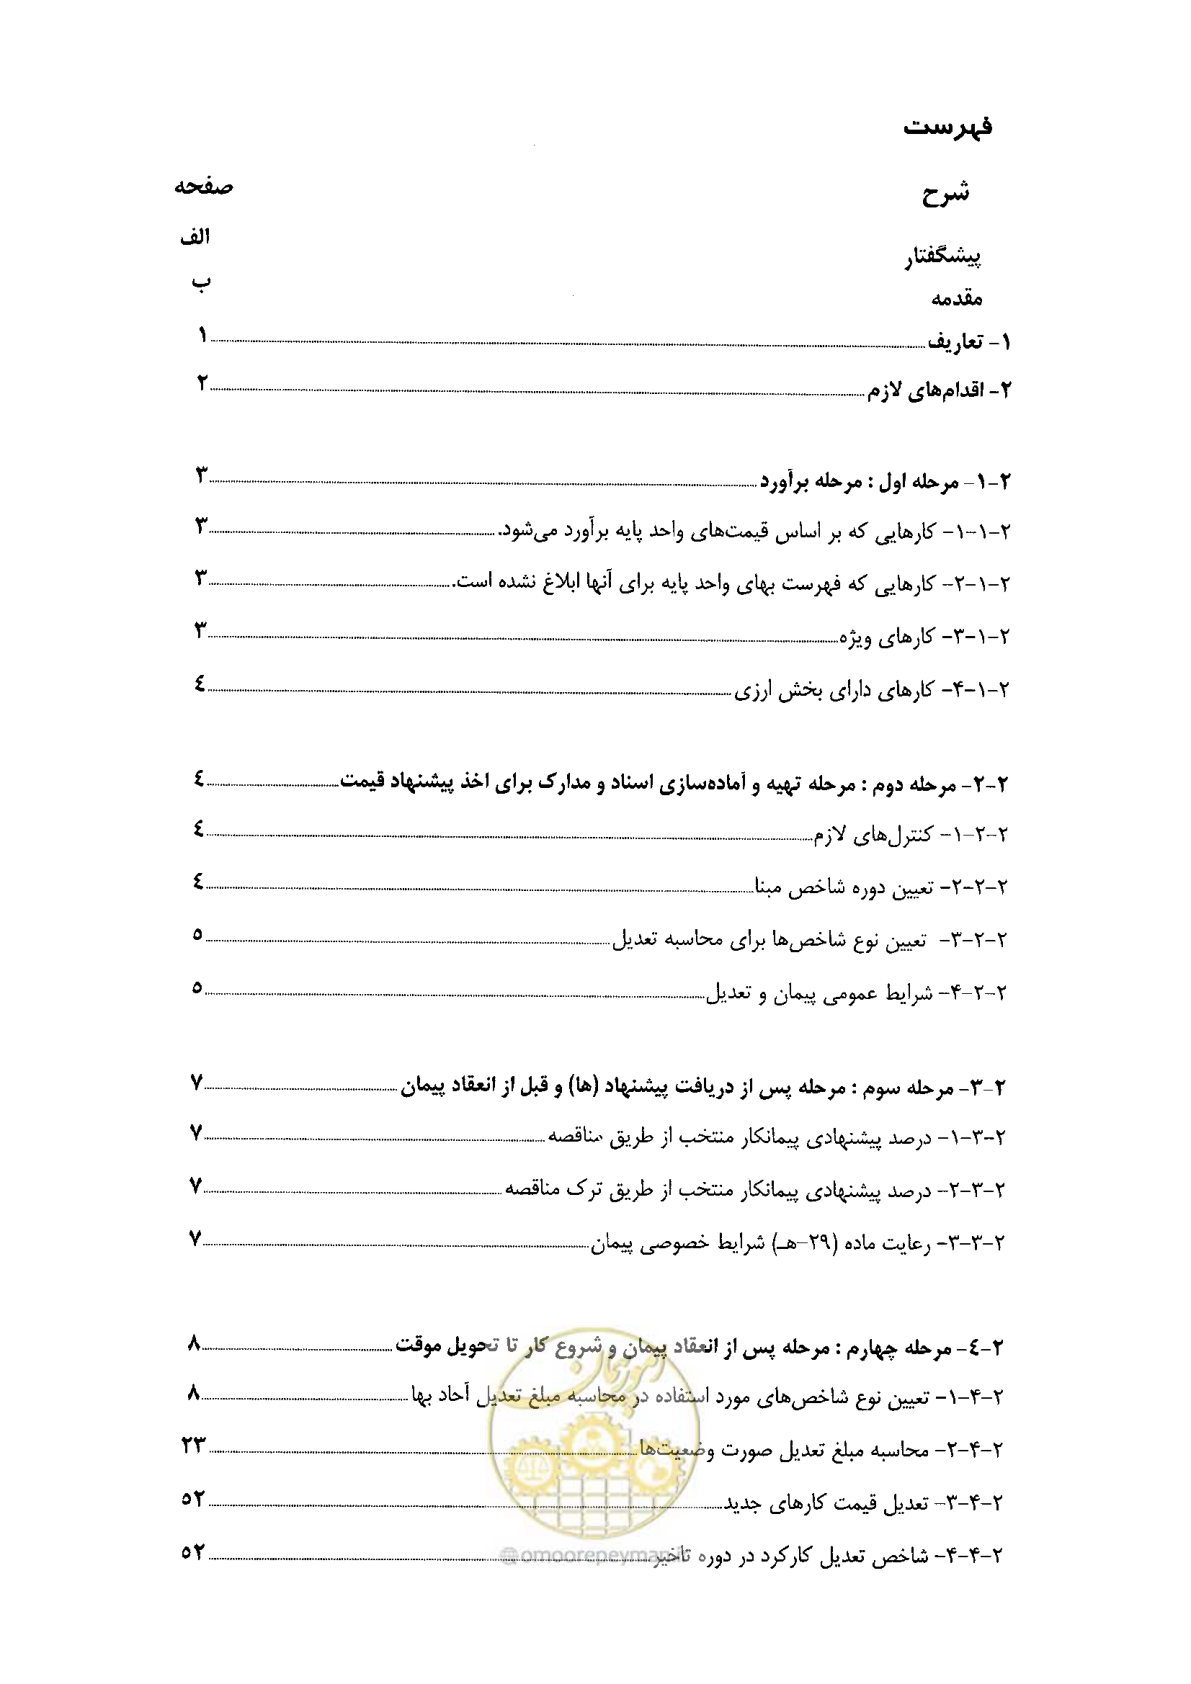 فهرست
شرح صفحه
پیشگفتار الف
مقدمه ب
۱- تعاریف ۱
۲- اقدام‌های لازم ۲
۲-۱- مرحله اول : مرحله برآورد ۳
۲-۱-۱- کارهایی که بر اساس قیمت‌های واحد پایه برآورد می‌شود. ۳
۲-۱-۲- کارهایی که فهرست بهای واحد پایه برای آنها ابلاغ نشده است. ۳
۲-۱-۳- کارهای ویژه ۳
۲-۱-۴- کارهای دارای بخش ارزی ٤
۲-۲- مرحله دوم : مرحله تهیه و آماده‌سازی اسناد و مدارک برای اخذ پیشنهاد قیمت ٤
۲-۲-۱- کنترل‌های لازم ٤
۲-۲-۲- تعیین دوره شاخص مبنا ٤
۲-۲-۳- تعیین نوع شاخص‌ها برای محاسبه تعدیل ۵
۲-۲-۴- شرایط عمومی پیمان و تعدیل ۵
۲-۳- مرحله سوم : مرحله پس از دریافت پیشنهاد (ها) و قبل از انعقاد پیمان ۷
۲-۳-۱- درصد پیشنهادی پیمانکار منتخب از طریق مناقصه ۷
۲-۳-۲- درصد پیشنهادی پیمانکار منتخب از طریق ترک مناقصه ۷
۲-۳-۳- رعایت ماده (۲۹-هـ) شرایط خصوصی پیمان ۷
۲-٤- مرحله چهارم : مرحله پس از انعقاد پیمان و شروع کار تا تحویل موقت ۸
۲-۴-۱- تعیین نوع شاخص‌های مورد استفاده در محاسبه مبلغ تعدیل آحاد بها ۸
۲-۴-۲- محاسبه مبلغ تعدیل صورت وضعیت‌ها ۲۳
۲-۴-۳- تعدیل قیمت کارهای جدید ۵۲
۲-۴-۴- شاخص تعدیل کارکرد در دوره تاخیر ۵۲
امور پیمان